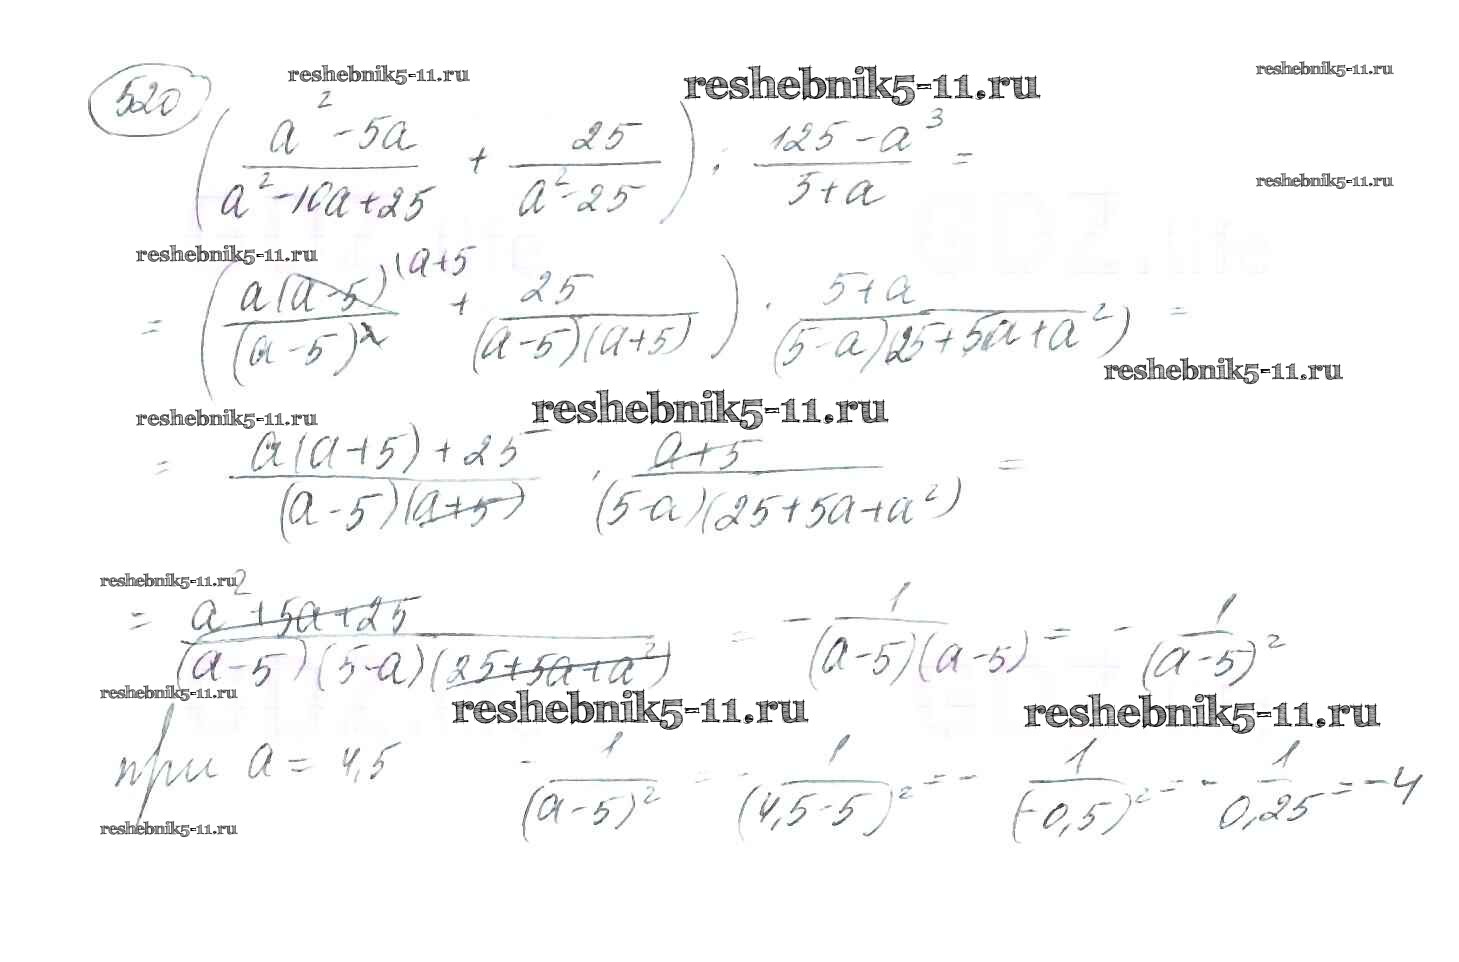 reshebnik5-11.ru reshebnik5-11.ru reshebnik5-11.ru
520 ( (a² - 5a)/(a² - 10a + 25) + 25/(a² - 25) ) : (125 - a³)/(5 + a) =
reshebnik5-11.ru
reshebnik5-11.ru
= ( a(a - 5)/(a - 5)² (a + 5 + 25/((a - 5)(a + 5)) ) · (5 + a)/((5 - a)(25 + 5a + a²)) =
reshebnik5-11.ru
reshebnik5-11.ru reshebnik5-11.ru
= (a(a + 5) + 25)/((a - 5)(a + 5)) · (a + 5)/((5 - a)(25 + 5a + a²)) =
reshebnik5-11.ru
= (a² + 5a + 25)/((a - 5)(5 - a)(25 + 5a + a²)) = - 1/((a - 5)(a - 5)) = - 1/(a - 5)²
reshebnik5-11.ru reshebnik5-11.ru reshebnik5-11.ru
при a = 4,5 - 1/(a - 5)² = - 1/(4,5 - 5)² = - 1/(-0,5)² = - 1/0,25 = -4
reshebnik5-11.ru